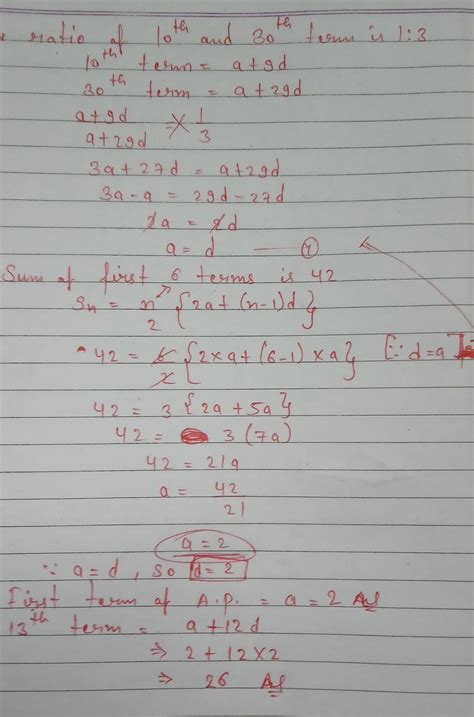 ratio of 10th and 30th term is 1:3
10th term = a+9d
30th term = a+29d
a+9d / a+29d = 1/3
3a+27d = a+29d
3a-a = 29d-27d
2a = 2d
a = d
Sum of first 6 terms is 42
Sn = n/2 {2a+(n-1)d}
42 = 6/2 {2×a+(6-1)×a} [∵ d=a]
42 = 3 {2a+5a}
42 = 3 (7a)
42 = 21a
a = 42/21
a = 2
∵ a=d, so d=2
First term of A.P. = a = 2 As
13th term = a+12d
⇒ 2+12×2
⇒ 26 As